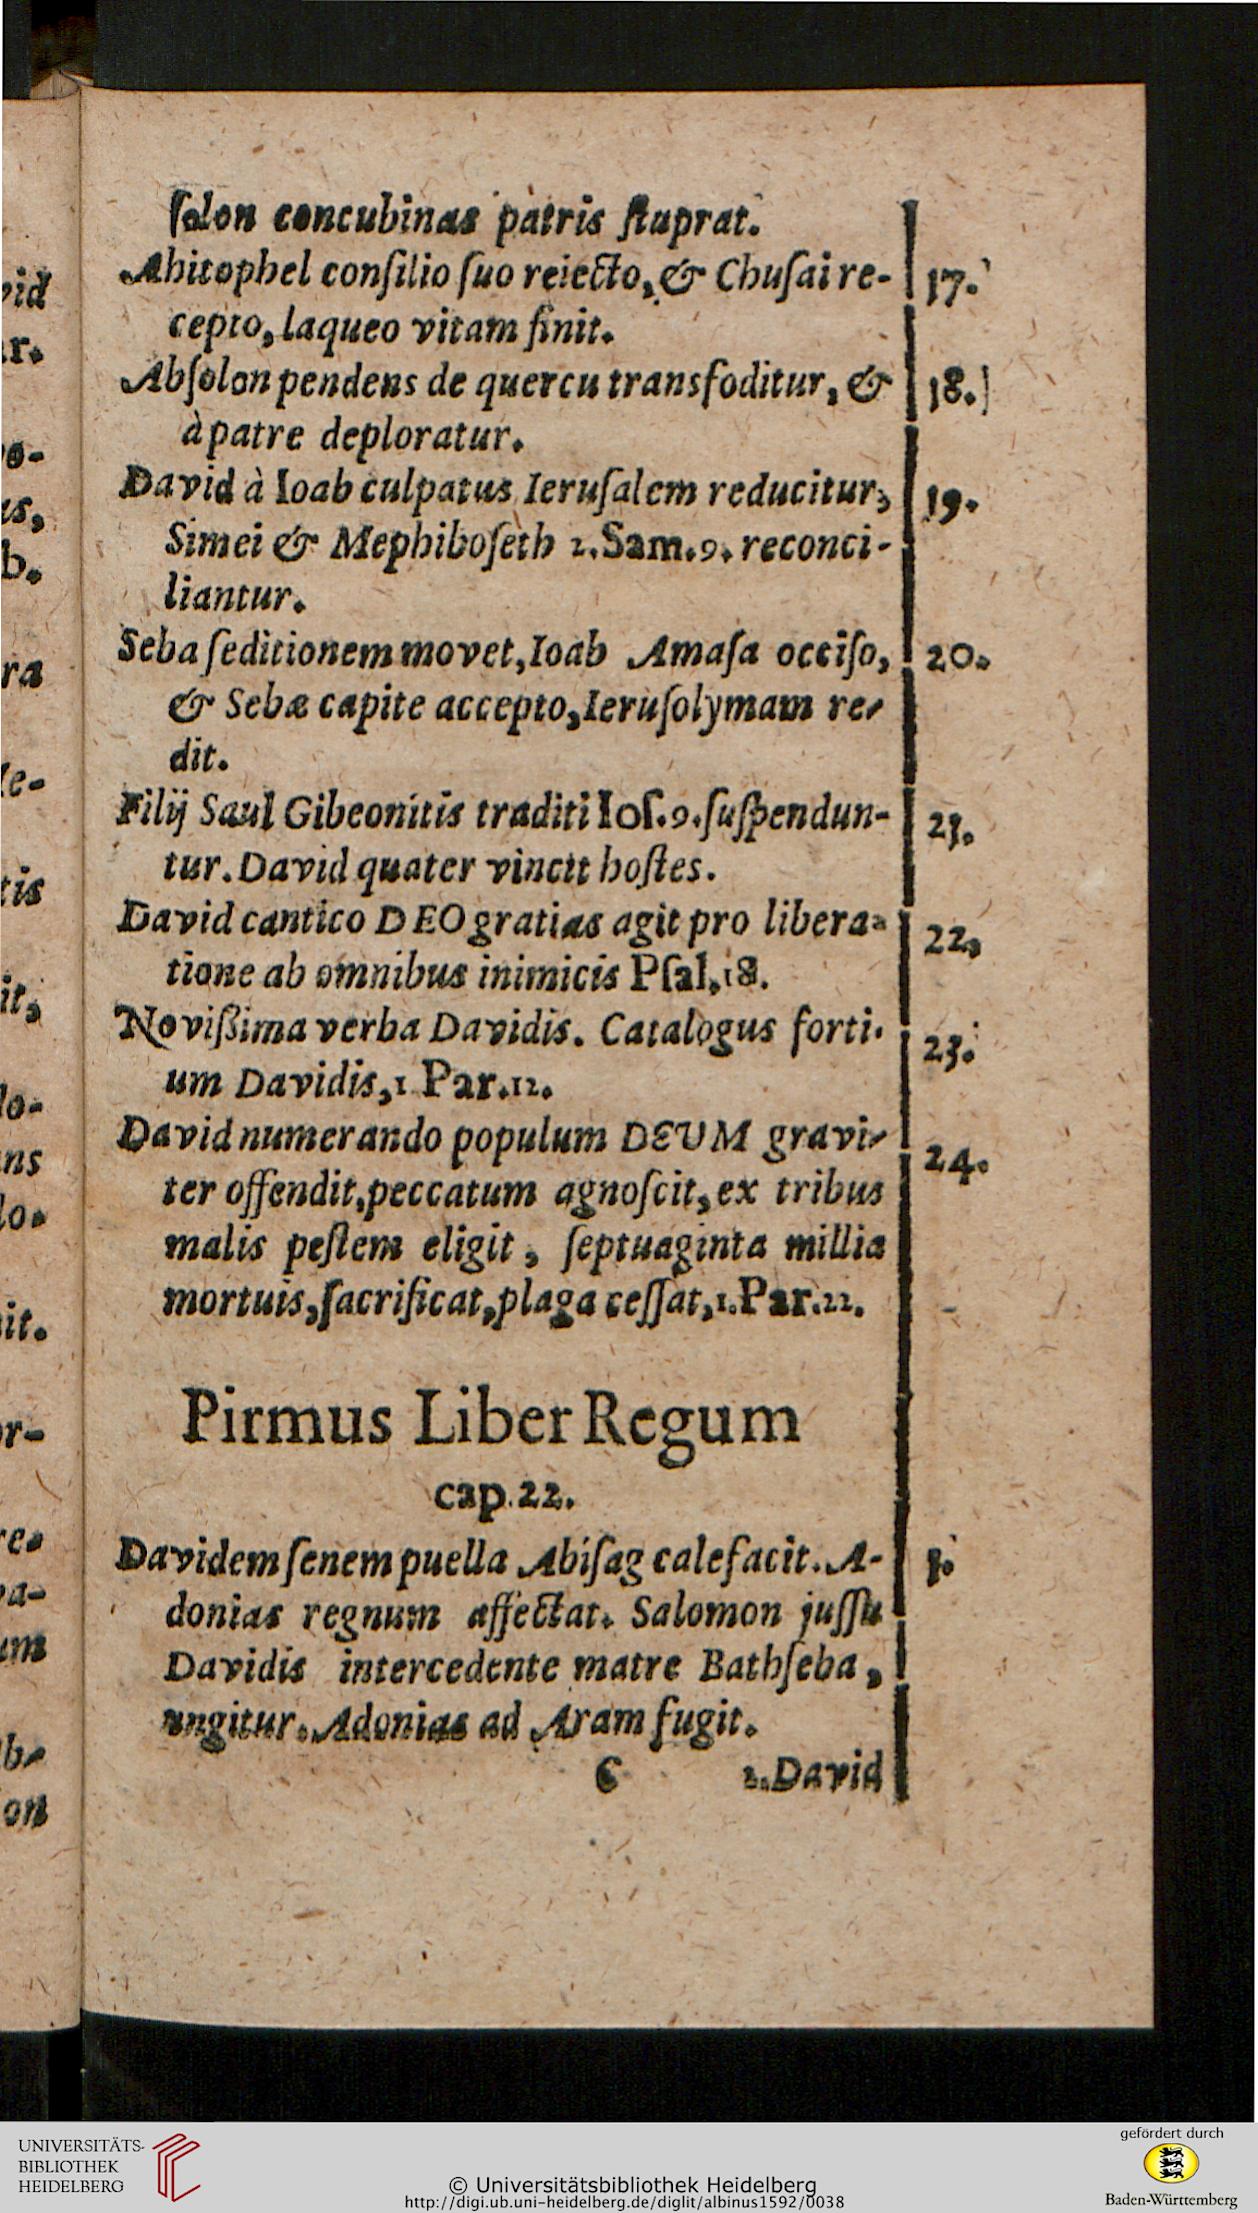 ſolon concubinas patris ſtuprat.
Ahitophel conſilio ſuo reiecto, & Chuſai re- 17.
cepto, laqueo vitam finit.
Abſolon pendens de quercu transfoditur, & 18.
à patre deploratur.
David à Ioab culpatus Ieruſalem reducitur, 19.
Simei & Mephiboſeth 2. Sam. 9. reconci-
liantur.
Seba ſeditionem movet, Ioab Amaſa occiſo, 20.
& Sebæ capite accepto, Ieruſolymam re-
dit.
Filij Saul Gibeonitis traditi Ioſ. 9. ſuſpendun- 21.
tur. David quater vincit hoſtes.
David cantico DEO gratias agit pro libera- 22.
tione ab omnibus inimicis Pſal. 18.
Novißima verba Davidis. Catalogus forti- 23.
um Davidis, 1 Par. 12.
David numerando populum DEUM gravi- 24.
ter offendit, peccatum agnoſcit, ex tribus
malis peſtem eligit, ſeptuaginta millia
mortuis, ſacrificat, plaga ceſſat, 1. Par. 22.
Pirmus Liber Regum
cap. 22.
Davidem ſenem puella Abiſag calefacit. A- 1.
donias regnum affectat. Salomon juſſu
Davidis intercedente matre Bathſeba,
ungitur. Adonias ad Aram fugit.
C 2. David
vid
r.
o-
us,
b.
ra
e-
tis
it,
lo-
ns
lo-
it.
or-
re-
va-
um
b-
on
UNIVERSITÄTS-
BIBLIOTHEK
HEIDELBERG
© Universitätsbibliothek Heidelberg
http://digi.ub.uni-heidelberg.de/diglit/albinus1592/0038
gefördert durch
Baden-Württemberg